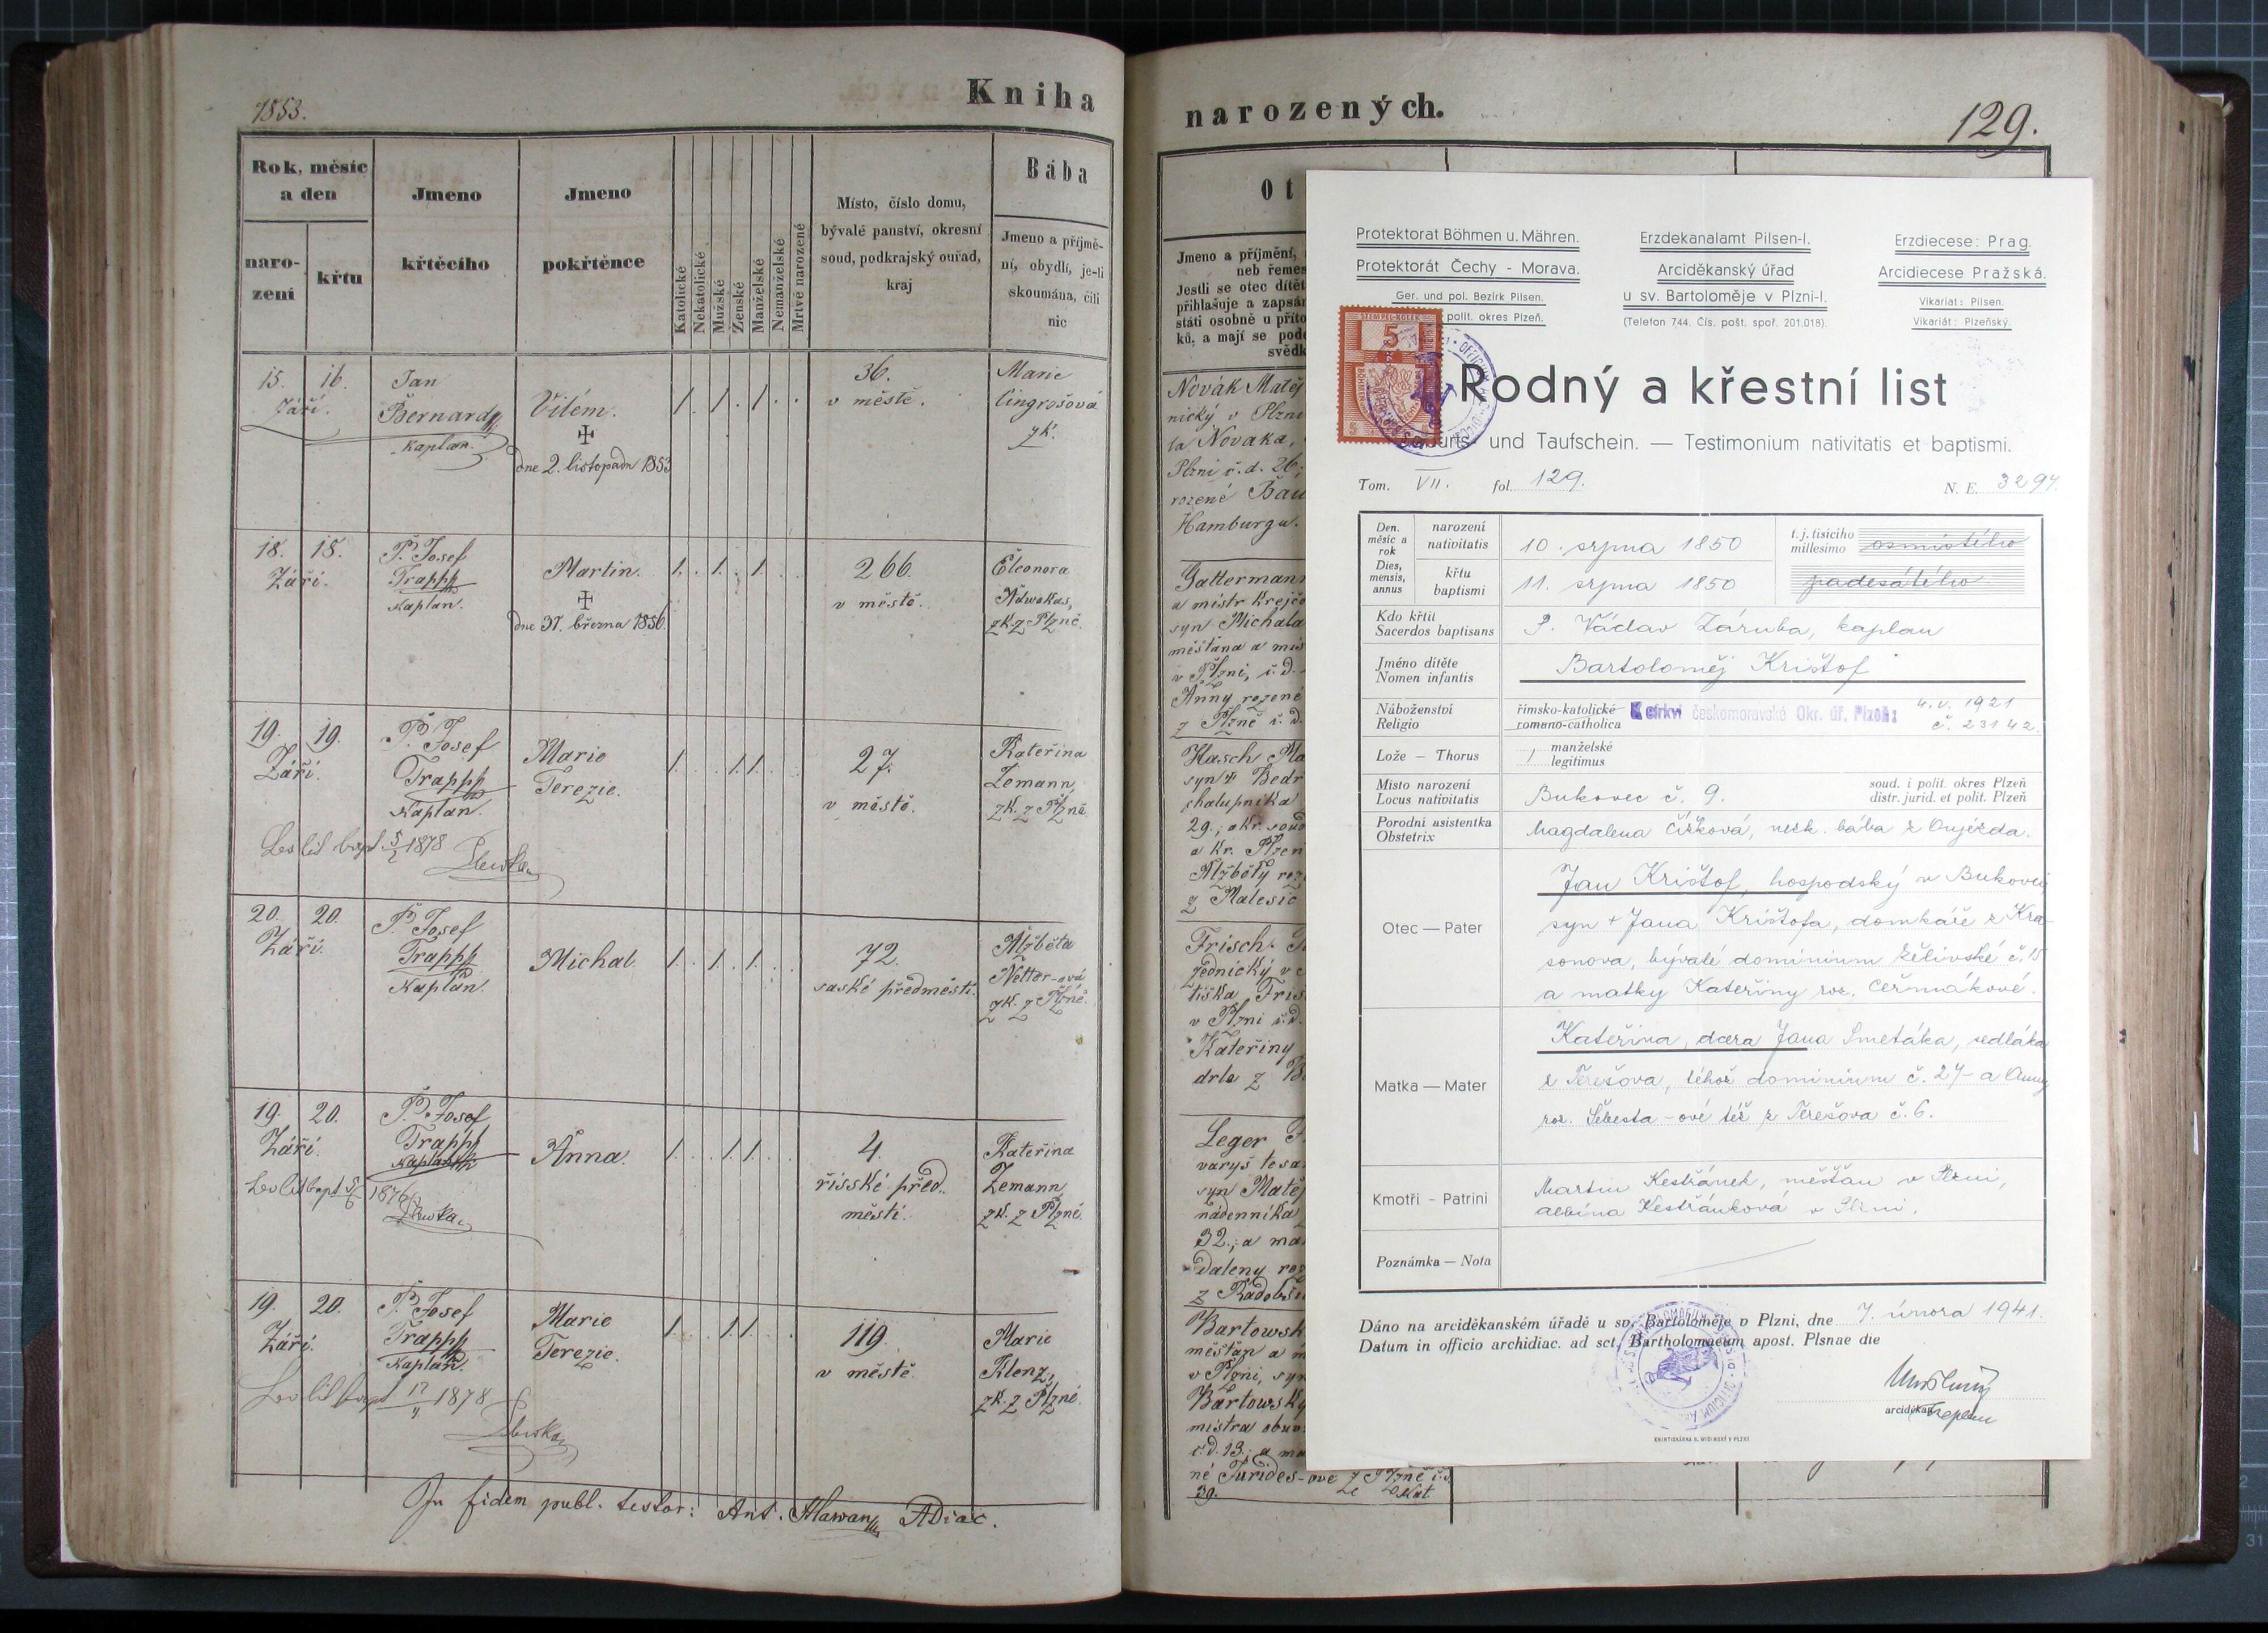 1853.
Kniha
Rok, měsíc
a den
naro-
zení
křtu
Jmeno
křtěcího
Jmeno
pokřtěnce
Katolické
Nekatolické
Mužské
Zenské
Manželské
Nemanželské
Mrtvě narozené
Místo, číslo domu,
bývalé panství, okresní
soud, podkrajský ouřad,
kraj
Bába
Jmeno a příjmě-
ní, obydlí, je-li
skoumána, čili
nic
15. 16.
Září.
Jan
Bernardy
kaplan.
Vilém.
dne 2. listopadu 1853
36.
v městě.
Marie
lingrošová
zk.
18. 18.
Září.
P. Josef
Trappl
Kaplan.
Martin.
dne 31. března 1856.
266.
v městě.
Eleonora
Adwokas,
zk. z Plzně.
19. 19.
Září.
P. Josef
Trappl
Kaplan.
Marie
Terezie.
27.
v městě.
Kateřina
Zemann,
zk. z Plzně.
1878
20. 20.
Září.
P. Josef
Trappl
Kaplan.
Michal
72.
saské předměstí.
Alžběta
Netter-ová
zk. z Plzně.
19. 20.
Září.
P. Josef
Trappl
Kaplan
Anna.
4.
říšské před..
městí.
Kateřina
Zemann,
zk. z Plzně.
1876
19. 20.
Září.
P. Josef
Trappl
Kaplan.
Marie
Terezie.
119
v městě.
Marie
Klenz,
zk. z Plzně.
1878
In fidem publ. testor: Ant. Hlawan ADiac.
narozených.
129.
Ot
Jmeno a příjmění,
neb řemes
Jestli se otec dítět
přihlašuje a zapsán
státi osobně u příto
ků, a mají se pode
svědk
Novák Matěj
nický v Plzni
la Nováka,
Plzni č.d. 26;
rozené Bau
Hamburgu.
Gattermann
a mistr krejčo
syn Michala
měšťana a mis
v Plzni, č.d.
Anny rozené
z Plzně č.d.
Hasch Ma
syn Bedr
chalupníka
29., okr. soud
a kr. Plzen
Alžběty roz
z Malesic
Frisch
zednický v
tiška Fris
v Plzni č.d.
Kateřiny
drle z
Leger
varyš tesa
syn Matěj
nádenníka
32.; a ma
daleny roz
z Radobč
Bartowsk
měšťan a m
v Plzni, syn
Bartowský
mistra obuv
č.d. 13.; a ma
né Jurides-ové z Plzně č.d.
39.
Protektorat Böhmen u. Mähren.
Protektorát Čechy - Morava.
Ger. und pol. Bezirk Pilsen.
polit. okres Plzeň.
Erzdekanalamt Pilsen-I.
Arciděkanský úřad
u sv. Bartoloměje v Plzni-I.
(Telefon 744. Čís. pošt. spoř. 201.018).
Erzdiecese: Prag.
Arcidiecese Pražská.
Vikariat: Pilsen.
Vikariát: Plzeňský.
5
Rodný a křestní list
Geburts- und Taufschein. — Testimonium nativitatis et baptismi.
Tom. VII. fol. 129.
N. E. 3294.
Den.
měsíc a
rok
Dies,
mensis,
annus
narození
nativitatis
10. srpna 1850
t. j. tisícího
millesimo
osmistého
křtu
baptismi
11. srpna 1850
padesátého
Kdo křtil
Sacerdos baptisans
P. Václav Záruba, kaplan
Jméno dítěte
Nomen infantis
Bartoloměj Krištof
Náboženství
Religio
římsko-katolické
romano-catholica
K církvi českomoravské Okr. úř. Plzeň:
4. V. 1921
č. 23142.
Lože — Thorus
1 manželské
legitimus
Místo narození
Locus nativitatis
Bukovec č. 9.
soud. i polit. okres Plzeň
distr. jurid. et polit. Plzeň
Porodní asistentka
Obstetrix
Magdalena Čížková, nezk. bába z Oujezda.
Otec — Pater
Jan Krištof, hospodský v Bukovci,
syn + Jana Krištofa, domkáře z Kra-
sonova, bývalé dominium želivské č. 15
a matky Kateřiny roz. Čeřmákové.
Matka — Mater
Kateřina, dcera Jana Smetáka, sedláka
z Terešova, téhož dominium č. 27- a Anny
roz. Šebesta-ové též z Terešova č. 6.
Kmotři - Patrini
Martin Kestřánek, měšťan v Plzni,
Albína Kestřánková v Plzni.
Poznámka — Nota
Dáno na arciděkanském úřadě u sv. Bartoloměje v Plzni, dne 7. února 1941.
Datum in officio archidiac. ad sct. Bartholomaeum apost. Plsnae die
arciděkan
KNIHTISKÁRNA B. WIDIMSKÝ V PLZNI